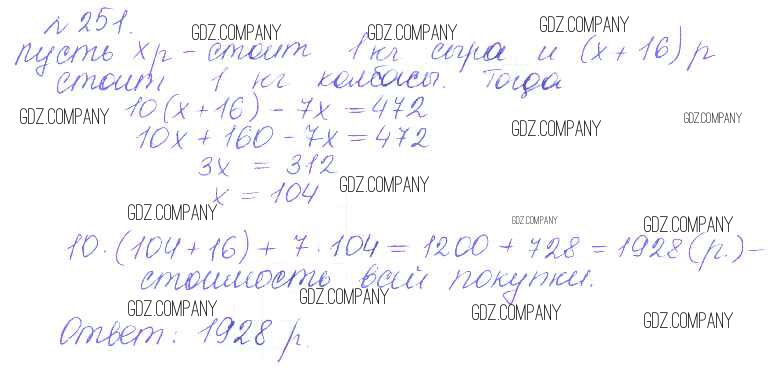 № 251.
GDZ.COMPANY GDZ.COMPANY GDZ.COMPANY
пусть x р - стоит 1 кг сыра и (x + 16) р
стоит 1 кг колбасы. Тогда
10(x + 16) - 7x = 472
GDZ.COMPANY GDZ.COMPANY GDZ.COMPANY
10x + 160 - 7x = 472
3x = 312
x = 104
GDZ.COMPANY
GDZ.COMPANY GDZ.COMPANY GDZ.COMPANY
10 · (104 + 16) + 7 · 104 = 1200 + 728 = 1928 (р.) -
стоимость всей покупки.
GDZ.COMPANY GDZ.COMPANY GDZ.COMPANY GDZ.COMPANY
Ответ: 1928 р.